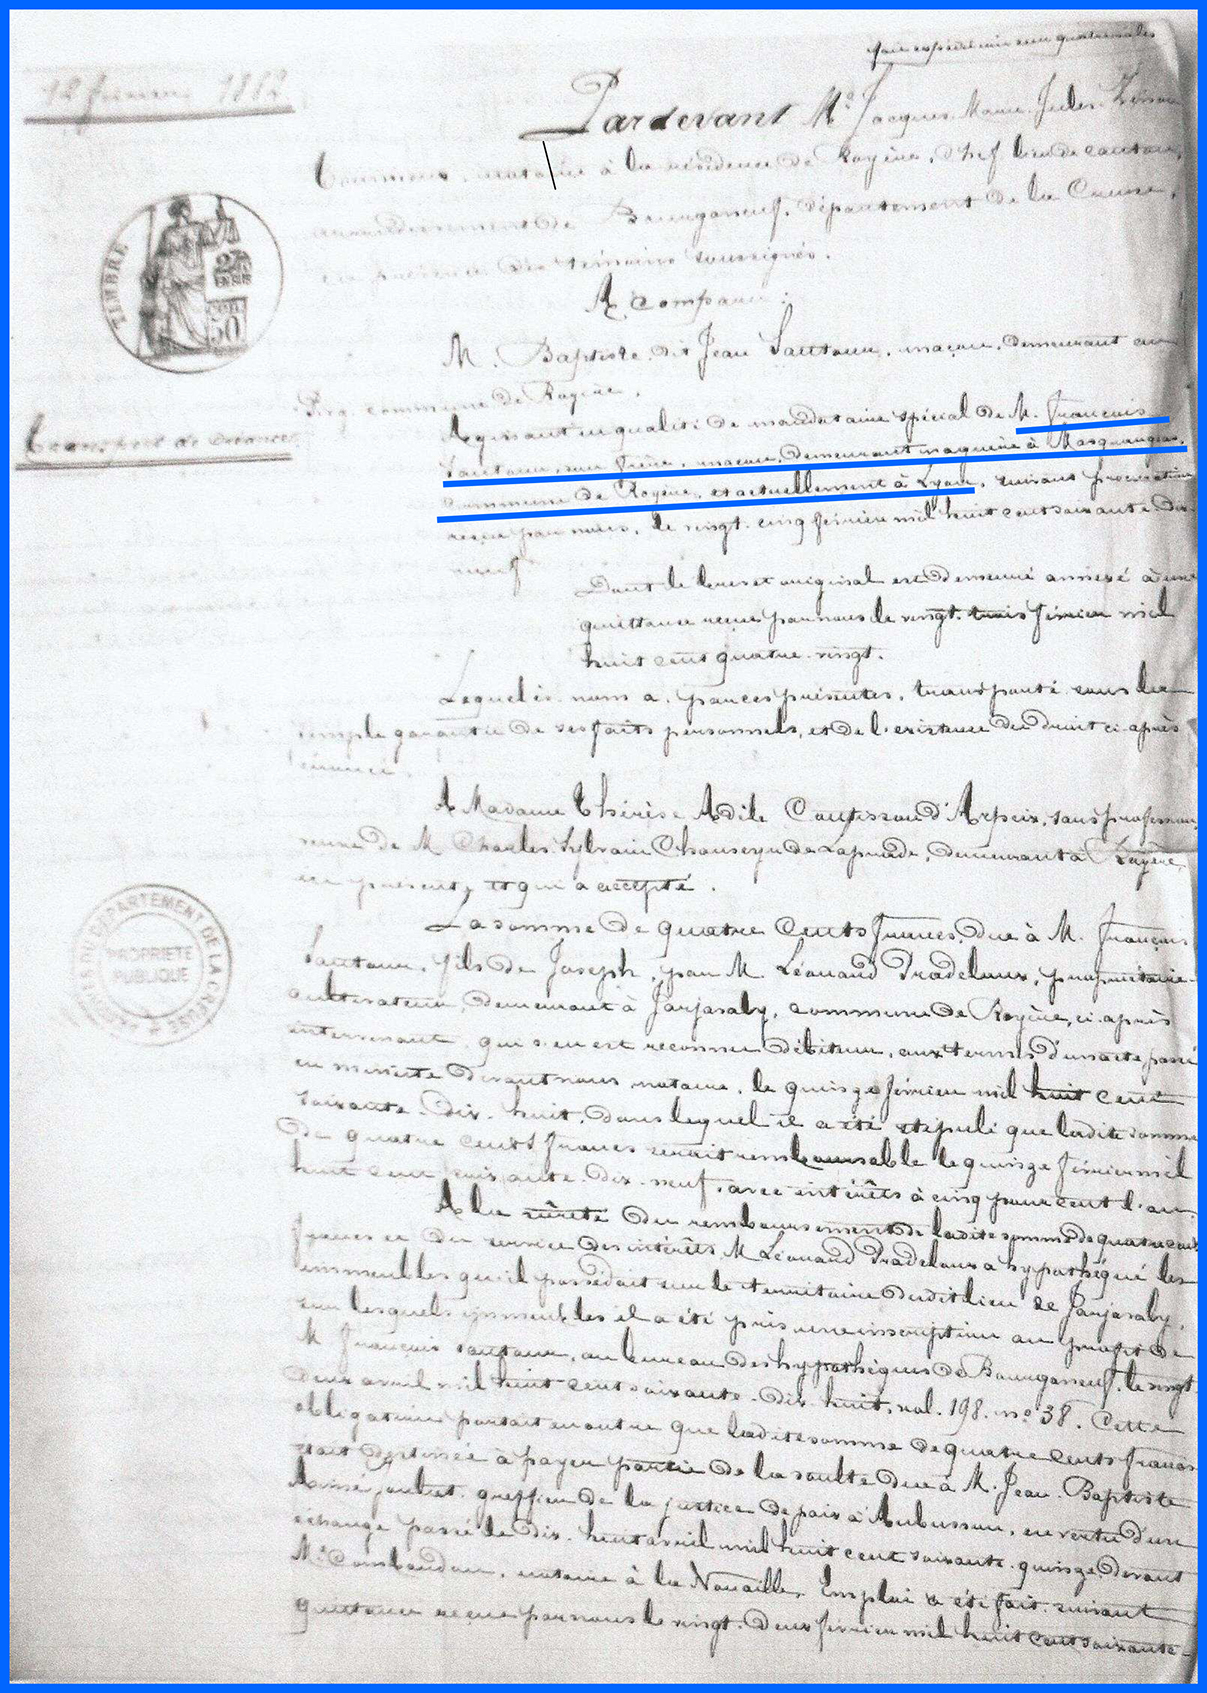 12 février 1882
Pardevant Me Jacques Marie Jules
notaire à la résidence de Royère, chef lieu de canton,
arrondissement de Bourganeuf, département de la Creuse,
en présence des témoins soussignés.
A comparu :
M. Baptiste dit Jean Sautour, maçon, demeurant au
commune de Royère.
Transport de créances
Agissant en qualité de mandataire spécial de M. François
Sautour, son frère, maçon, demeurant naguère à
commune de Royère, et actuellement à Lyon, suivant procuration
reçue par nous, le vingt-cinq février mil huit cent soixante dix-
neuf
Dont le brevet original est demeuré annexé à une
quittance reçue par nous le vingt-trois février mil
huit cent quatre-vingt.
Lequel ès-noms a, par ces présentes, transporté sous la
simple garantie de ses faits personnels, et de l'existence du droit ci-après
énoncé.
A Madame Thérèse Adile d'Arpeix, sans profession,
veuve de M. Charles Sylvain de Lapraède, demeurant à Royère,
ici présente, et qui a accepté.
La somme de quatre cents francs, due à M. François
Sautour, fils de Joseph, par M. Léonard Pradeloux, propriétaire-
cultivateur, demeurant à Jarjasaly, commune de Royère, ci-après
intervenant, qui s'en est reconnu débiteur, aux termes d'un acte passé
en minute devant nous, notaire, le quinze février mil huit cent
soixante-dix-huit, dans lequel il a été stipulé que ladite somme
de quatre cents francs serait remboursable le quinze février mil
huit cent soixante-dix-neuf, avec intérêts à cinq pour cent l'an.
A la sûreté du remboursement de ladite somme de quatre cents
francs et du service des intérêts M. Léonard Pradeloux a hypothéqué les
immeubles qu'il possédait sur le territoire dudit lieu de Jarjasaly,
sur lesquels immeubles il a été pris une inscription au profit de
M. François Sautour, au bureau des hypothèques de Bourganeuf, le vingt
deux avril mil huit cent soixante-dix-huit, vol. 198, no 38. Cette
obligation portait en outre que ladite somme de quatre cents francs
était destinée à payer partie de la soulte due à M. Jean-Baptiste
Aimé greffier de la justice de paix à Aubusson, en vertu d'un
échange passé le dix-huit avril mil huit cent soixante-quinze devant
Me notaire à la Nouaille. Emploi a été fait suivant
quittance reçue par nous le vingt-deux février mil huit cent soixante-
TIMBRE
50
ARCHIVES DU DÉPARTEMENT DE LA CREUSE
PROPRIÉTÉ
PUBLIQUE